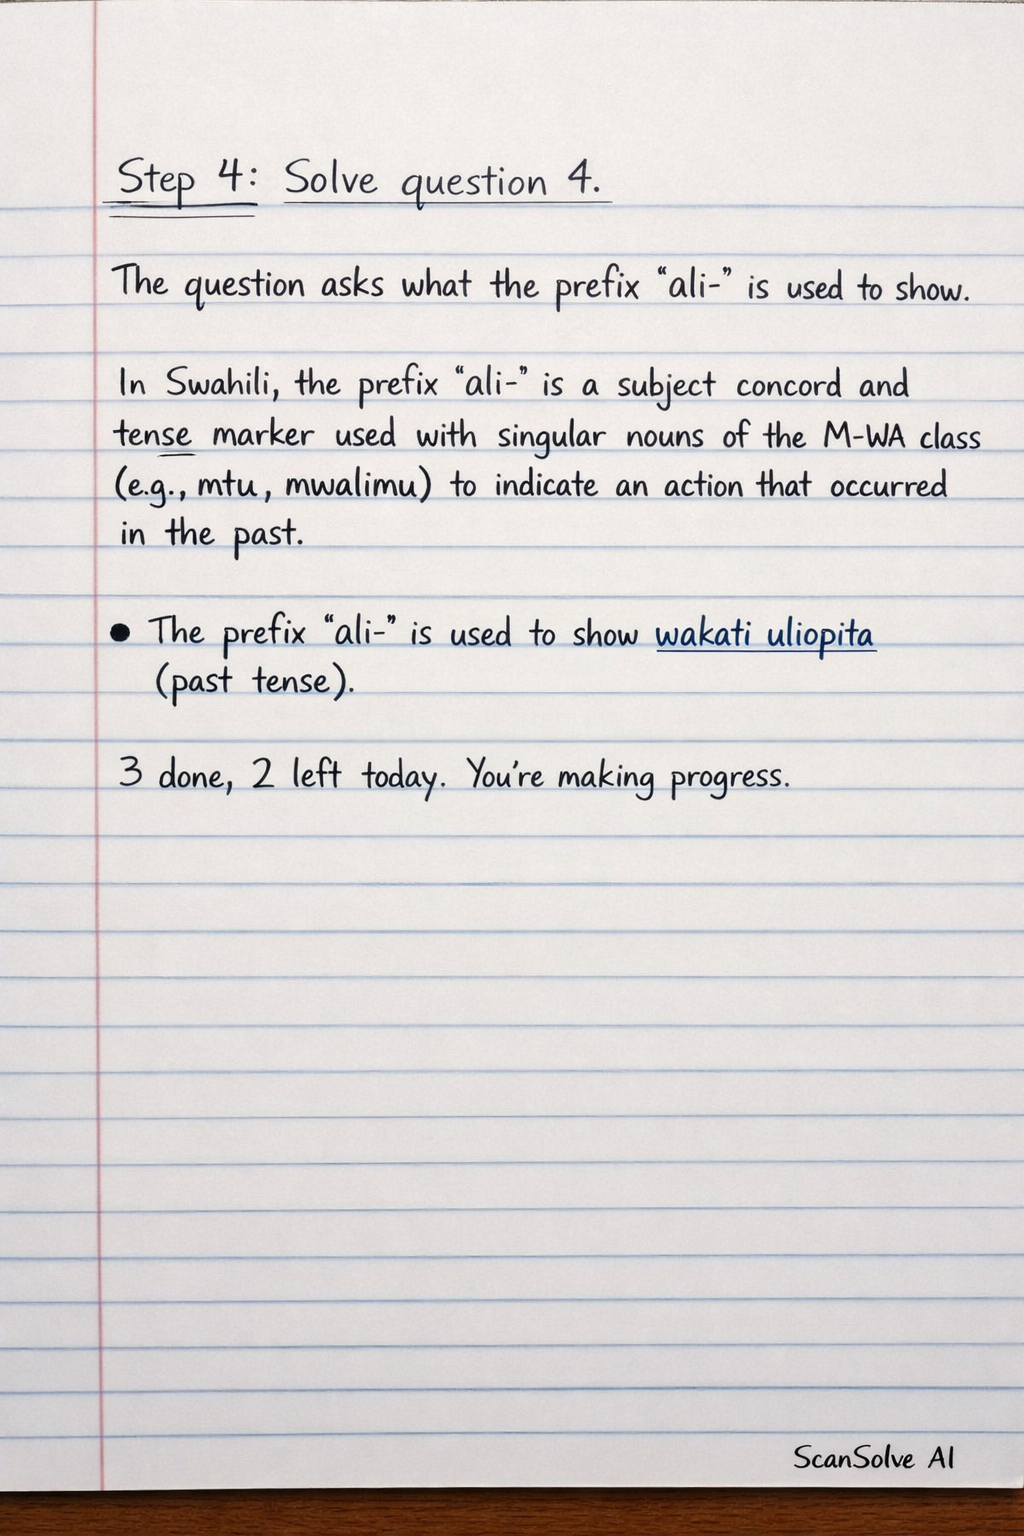 Step 4: Solve question 4.
The question asks what the prefix "ali-" is used to show.
In Swahili, the prefix "ali-" is a subject concord and
tense marker used with singular nouns of the M-WA class
(e.g., mtu, mwalimu) to indicate an action that occurred
in the past.
● The prefix "ali-" is used to show wakati uliopita
(past tense).
3 done, 2 left today. You're making progress.
ScanSolve AI